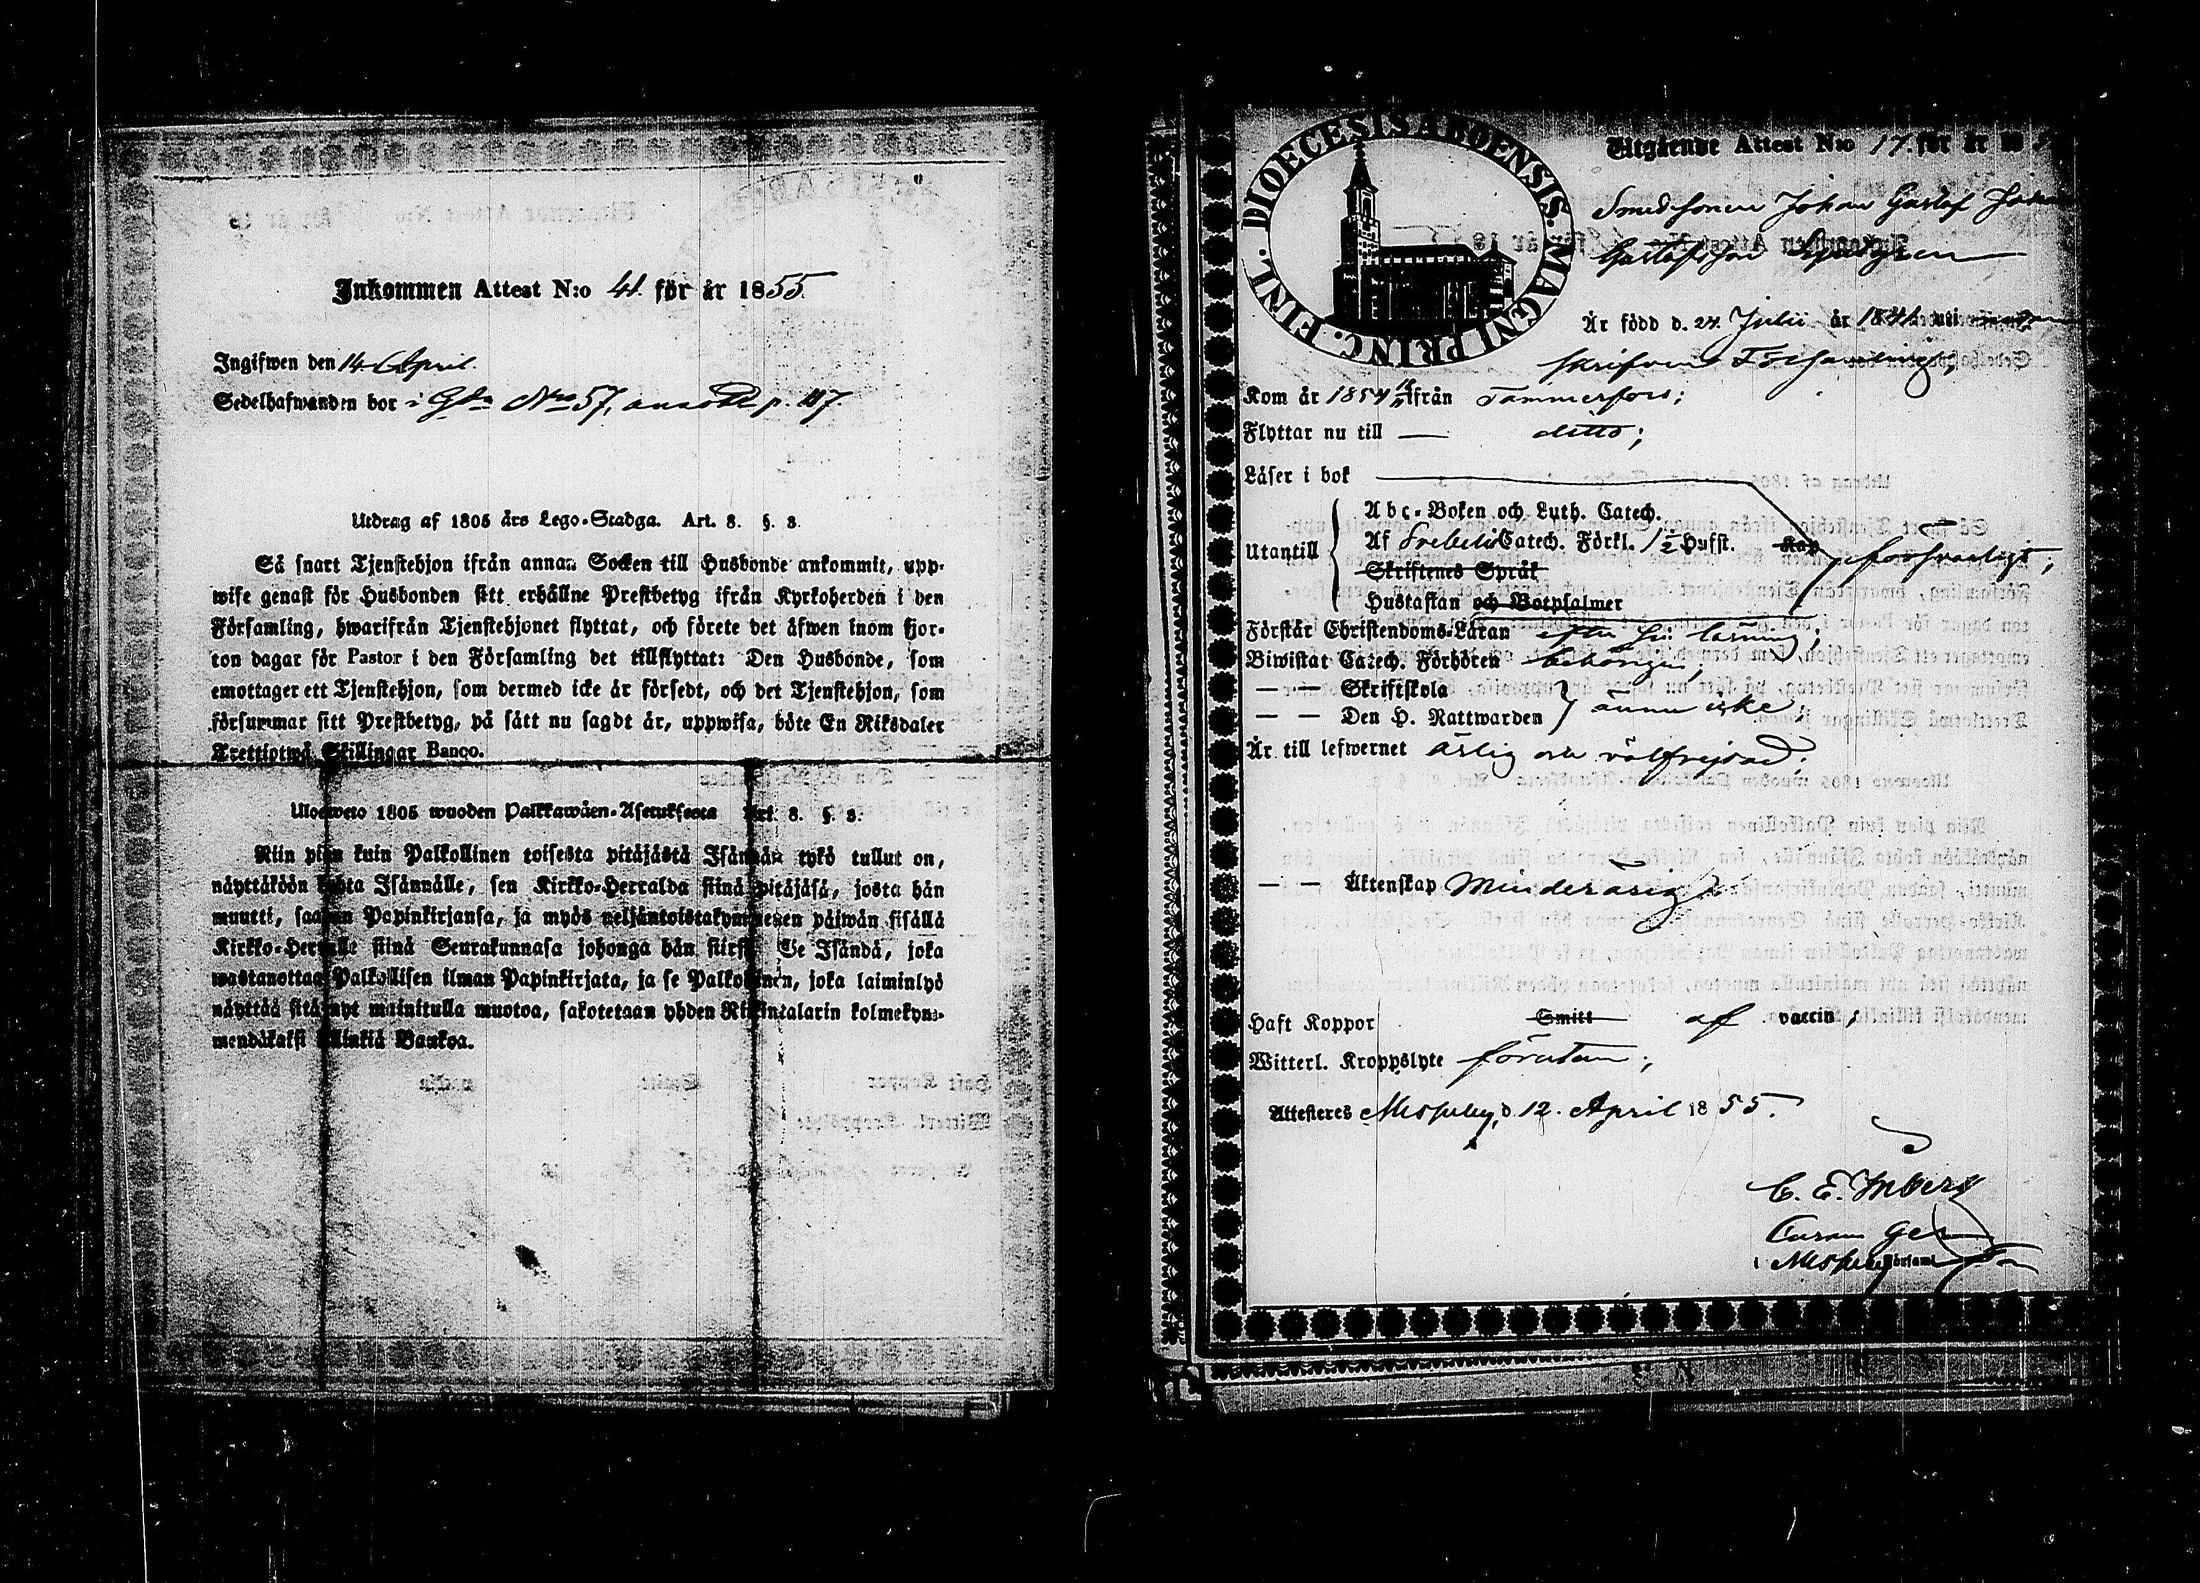 Inkommen Attest N:o 41. för år 1855.
Ingifwen den 14 April.
Sedelhafwanden bor i Gdn Nro 57, p. 117.
Utdrag af 1805 års Lego-Stadga. Art. 8. §. 8.
Så snart Tjenstehjon ifrån annan Socken till Husbonde ankommit, upp-
wise genast för Husbonden sitt erhållne Prestbetyg ifrån Kyrkoherden i den
Församling, hwarifrån Tjenstehjonet flyttat, och förete det äfwen inom fjor-
ton dagar för Pastor i den Församling det tillflyttat: Den Husbonde, som
emottager ett Tjenstehjon, som dermed icke är försedt, och det Tjenstehjon, som
försummar sitt Prestbetyg, på sätt nu sagdt är, uppwisa, böte En Riksdaler
Trettiotwå Skillingar Banco.
Ulosweto 1805 wuoden Palkkawäen-Asetuksesta Art. 8. §. 8.
Niin pian kuin Palkollinen toisesta pitäjästä Isännän tykö tullut on,
näyttäköön kohta Isännälle, sen Kirkko-Herralda siinä pitäjäsä, josta hän
muutti, saadun Papinkirjansa, ja myös neljäntoistakymmenen päiwän sisällä
Kirkko-Herralle siinä Seurakunnasa johonga hän siirsi. Se Isändä, joka
wastanottaa Palkollisen ilman Papinkirjata, ja se Palkollinen, joka laiminlyö
näyttää sitä nyt mainitulla muotoa, sakotetaan yhden Riikintalarin kolmekym-
mendäkaksi killinkiä Bankoa.
DIOECESIS ABOENSIS. MAGNI PRINC. FINL.
Utgående Attest N:o 17. för år 18
Smedsonen Johan Gustaf
Gustafsson
Är född d. 24 Julii år 1841 uti
Kom år 1854 ifrån Tammerfors;
Flyttar nu till — ditto;
Läser i bok
Abc-Boken och Luth. Catech.
Utantill Af Svebelii Catech. Förkl. 1 1/2 Hufst. Kap försvarligt;
Skriftenes Språk
Hustaflan och Botpsalmer
Förstår Christendoms-Läran efter sin läsning;
Biwistat Catech. Förhören behörigen;
— — Skriftskola
— — Den H. Nattwarden ännu icke;
Är till lefwernet ärlig och välfrejdad;
— — Äktenskap Minderårig;
Haft Koppor Smitt af vaccin;
Witterl. Kroppslyte förutan;
Attesteres Messuby d. 12. April 1855.
C. E.
i Messuby Församl